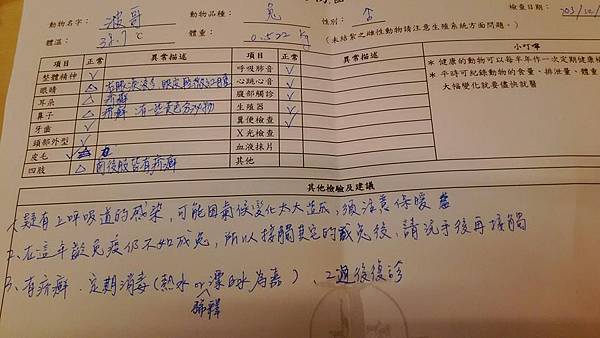 動物名字： 波哥 動物品種： 兔 性別： 否 檢查日期： 203/12/
體溫： 38.7 ℃ 體重： 0.522 kg (未結紮之雌性動物請注意生殖系統方面問題。)
項目 正常 異常描述 項目 正常 異常描述 小叮嚀
整體精神 ✓ 呼吸肺音 ✓
眼睛 △ 心跳心音 ✓
耳朵 △ 疥癬 腹部觸診 ✓
鼻子 △ 疥癬 有一些黃色分泌物 生殖器 ✓
牙齒 ✓ 糞便檢查 ✓
頭部外型 ✓ X光檢查
皮毛 ✓ 血液抹片
四肢 △ 兩後肢皆有疥癬 其他
* 健康的動物可以每半年作一次定期健康檢
* 平時可紀錄動物的食量、排泄量、體重
大幅變化就要儘快就醫
其他檢驗及建議
1. 疑有上呼吸道的感染，可能因氣候變化太大造成，須注意保暖
2. 在這年齡免疫仍不如成兔，所以接觸其它的成兔後，請洗手後再接觸
3. 有疥癬．定期消毒（熱水or漂白水為嘉），2週後復診
稀釋